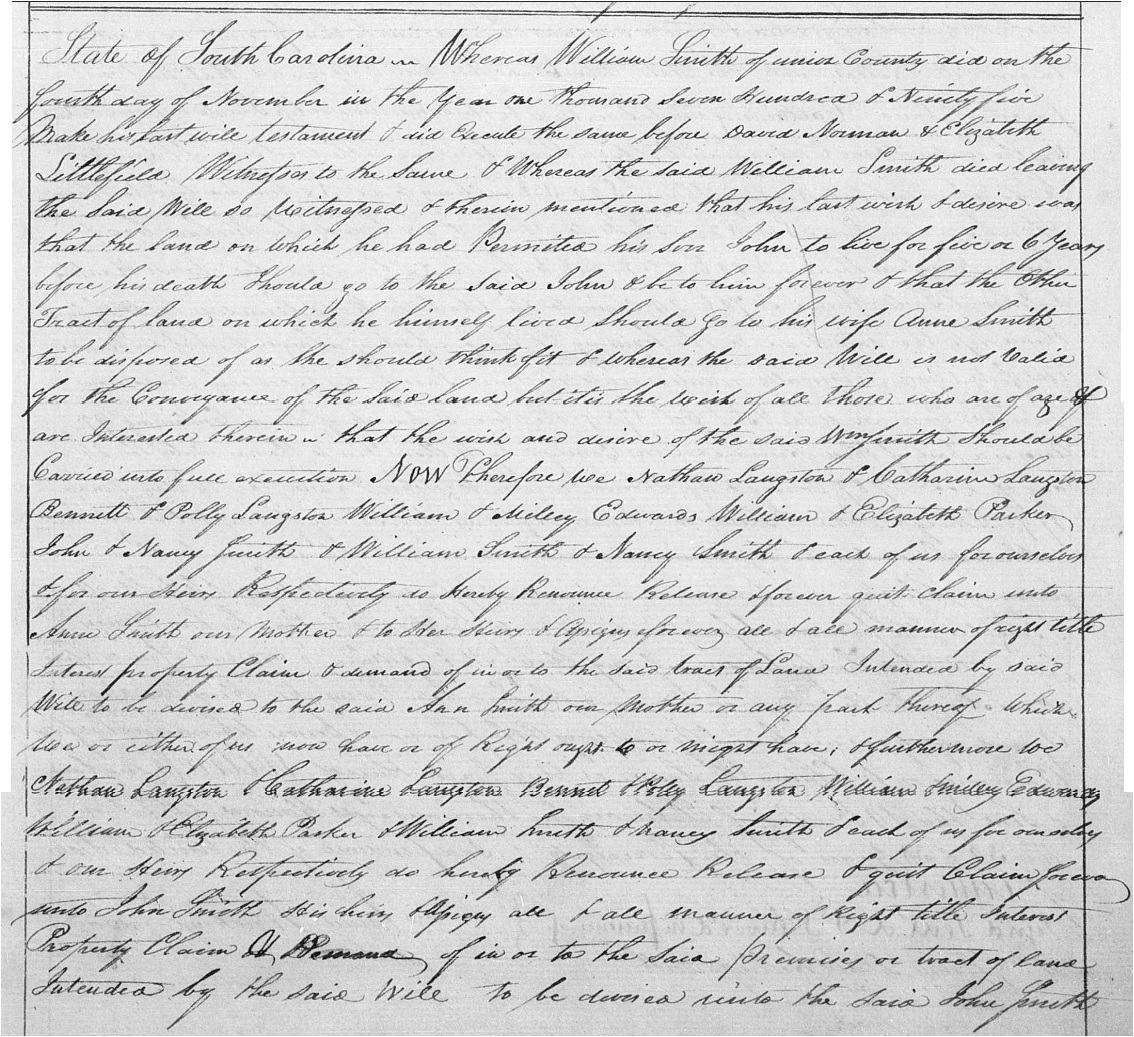 State of South Carolina Whereas William Smith of union County did on the
fourth day of November in the Year one thousand Seven Hundred & Ninety five
Make his last will testament & did Execute the same before David Norman & Elizabeth
Littlefield Witnesses to the Same & Whereas the said William Smith died leaving
the Said Will so Witnessed & therein mentioned that his last wish & desire was
that the land on which he had Permited his Son John to live for five or 6 Years
before his death Should go to the said John & be to him forever & that the Other
Tract of land on which he himself lived Should go to his wife Anne Smith
to be disposed of as she should think fit & whereas the said Will is not Valid
for the Conveyance of the said land but it is the wish of all those who are of age &
are Interested therein that the wish and desire of the said Wm Smith Should be
Carried into full execution Now Therefore we Nathan Langston & Catharine Langston
Bennett & Polly Langston William & Milley Edwards William & Elizabeth Parker
John & Nancy Smith & William Smith & Nancy Smith & each of us for ourselves
& for our Heirs Respectively do Hereby Renounce Release & forever quit claim unto
Anne Smith our Mother & to Her Heirs & Assigns forever all & all manner of right title
Interest property Claim & demand of in or to the said tract of Land Intended by said
Will to be devised to the said Ann Smith our Mother or any part thereof which
We or either of us now have or of Right ought to or might have; & furthermore we
Nathan Langston & Catharine Langston Bennet & Polly Langston William & Milley Edwards
William & Elizabeth Parker & William Smith & Nancy Smith & each of us for ourselves
& our Heirs Respectively do hereby Renounce Release & quit Claim forever
unto John Smith His heirs & Assigns all & all manner of Right title Interest
Property Claim & Demand of in or to the Said Premises or tract of land
Intended by the said Will to be devised unto the said John Smith